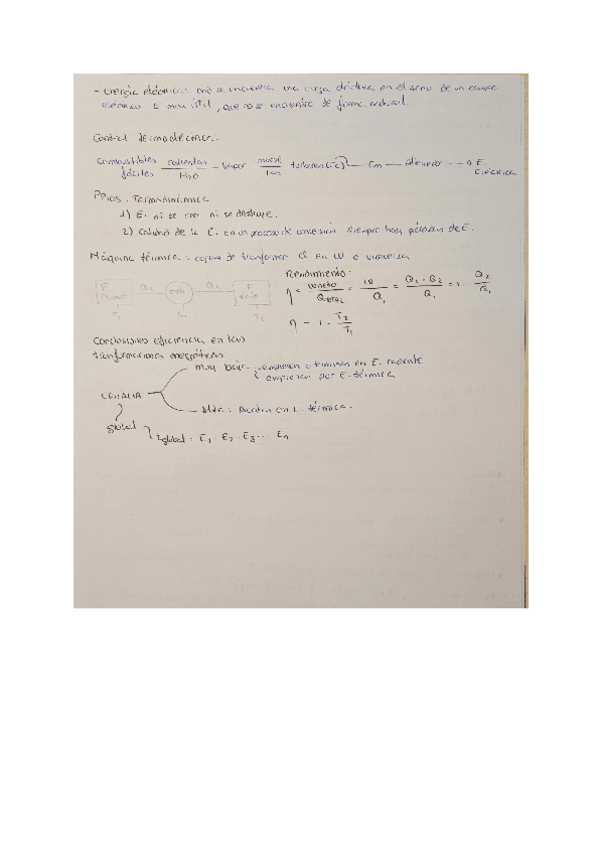 - Energía eléctrica: cómo se encuentra una carga eléctrica en el seno de un campo
eléctrico. E muy útil, que no se encuentra de forma natural.
Central termoeléctrica:
Combustibles fósiles calientan H2O vapor mueve las turbinas (Ec) Em alternador E. Eléctrica
Ppios. Termodinámica
1) E. ni se crea ni se destruye.
2) Calidad de la E. En un proceso de conversión siempre hay pérdidas de E.
Máquina térmica: capaz de transformar Q en W o viceversa
Rendimiento:
F. Q1 Q2 F.
T1 T2
η = Wneto / Q = W / Q1 = Q1 - Q2 / Q1 = 1 - Q2 / Q1
η = 1 - T2 / T1
Conclusiones eficiencia en las
transformaciones energéticas
muy baja: empiezan o terminan en E. radiante
empiezan por E. térmica
Alta: Acaban en E. térmica.
global
Eglobal = E1 · E2 · E3 ... En